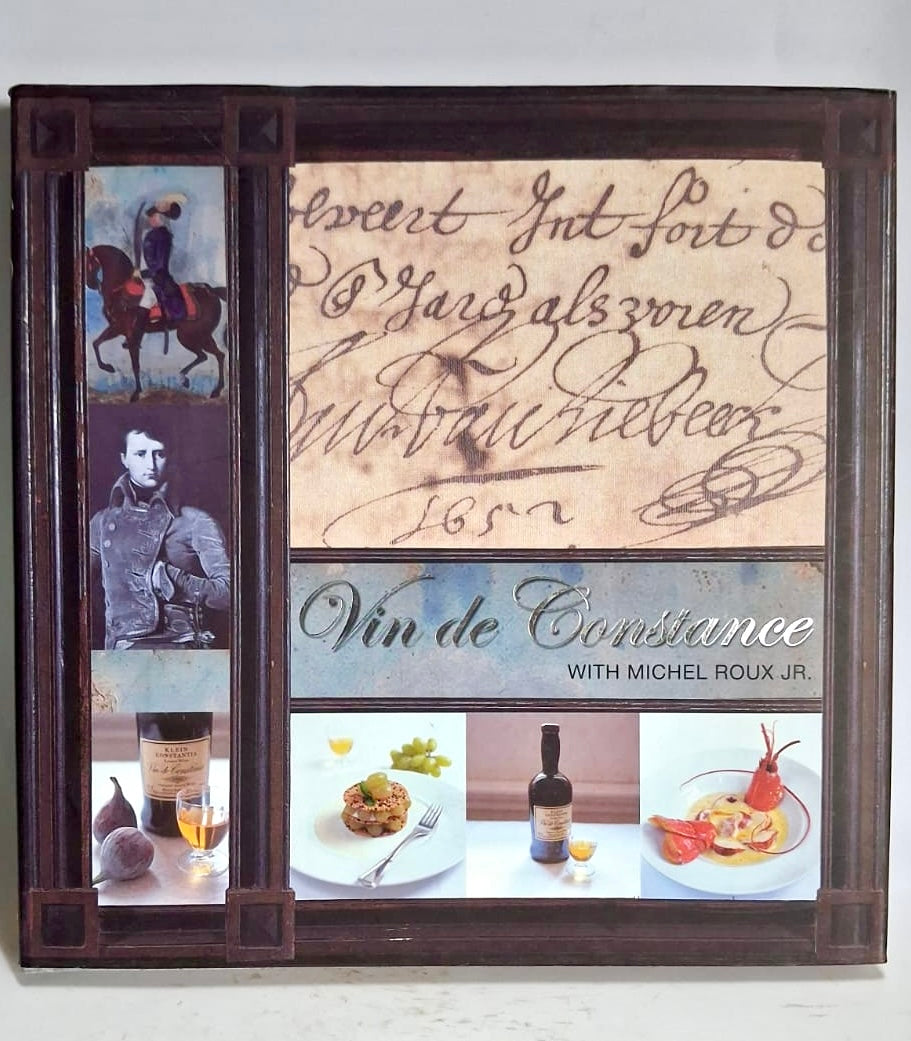 Int fort
als voren
van Riebeeck
1652
Vin de Constance
WITH MICHEL ROUX JR.
KLEIN
CONSTANTIA
Vin de Constance